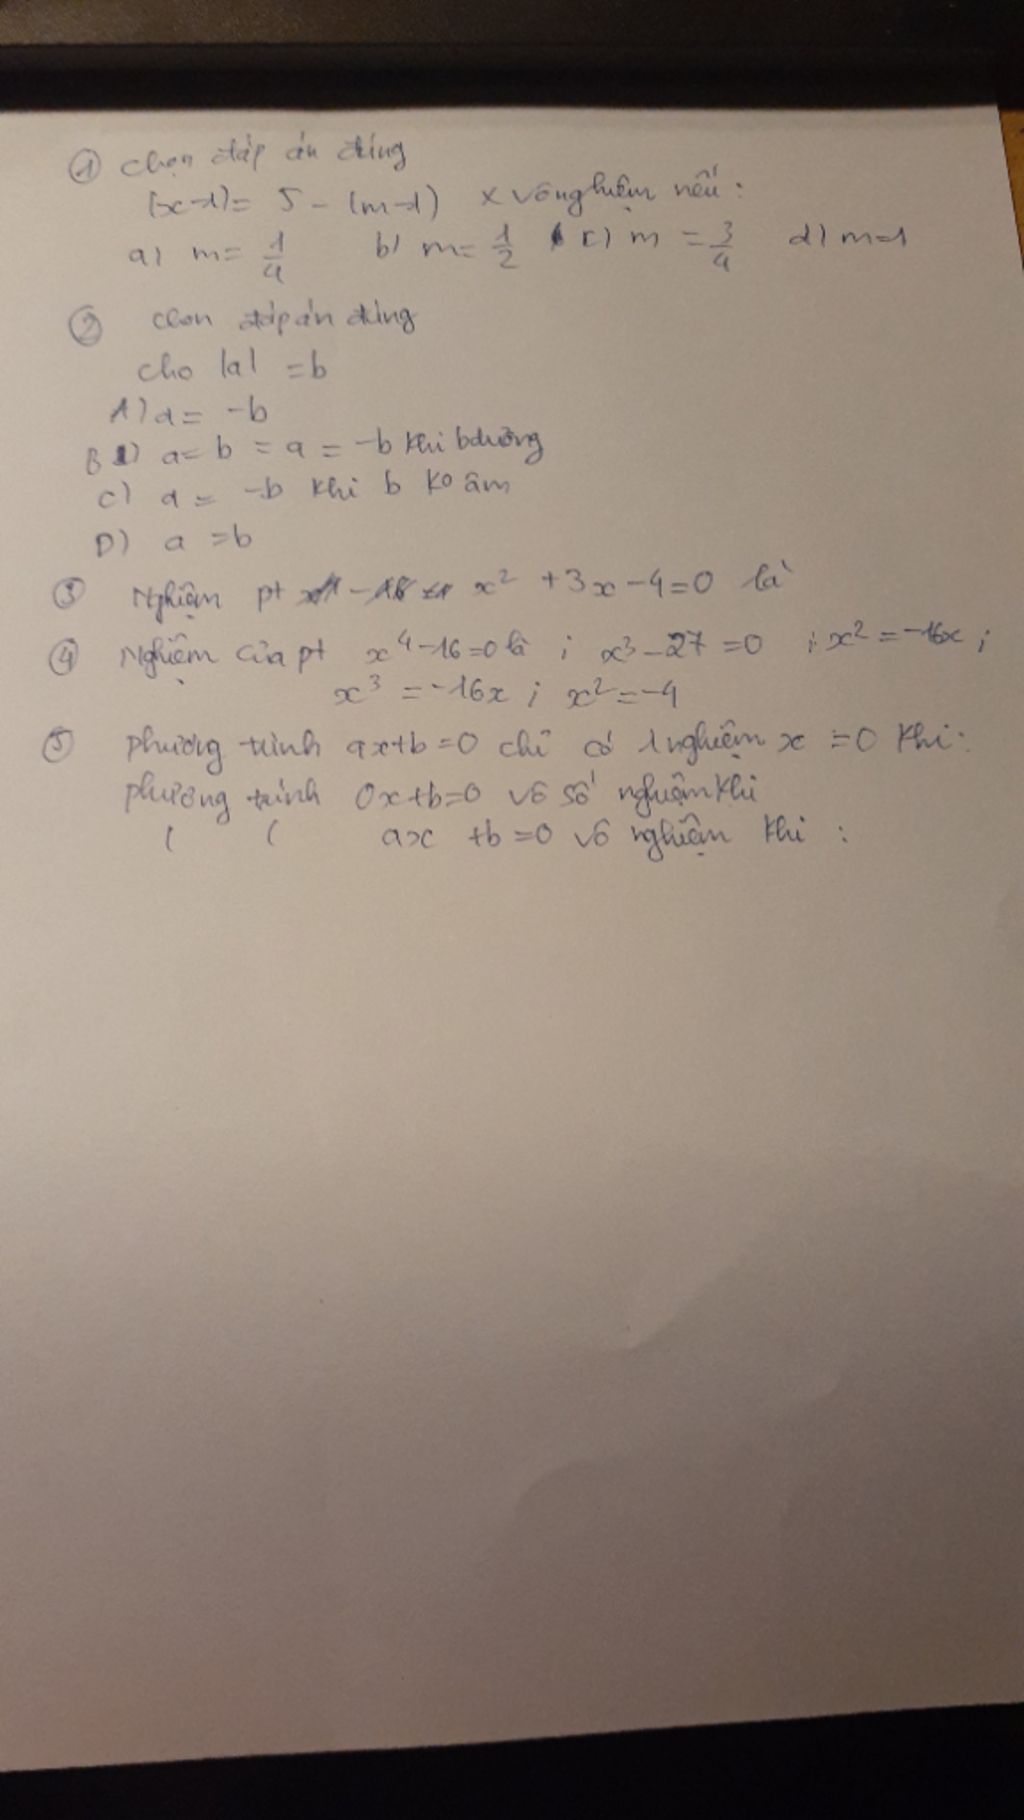 ① chọn đáp án đúng
(x-1) = 5 - (m-1) x vô nghiệm nếu :
a) m = 1/4 b) m = 1/2 c) m = 3/4 d) m=1
② chon đáp án đúng
cho |a| = b
A) a = -b
B) a = b = a = -b khi b dương
c) a = -b khi b ko âm
D) a = b
③ Nghiệm pt x² + 3x - 4 = 0 là
④ Nghiệm của pt x⁴ - 16 = 0 là ; x³ - 27 = 0 ; x² = -16x ;
x³ = -16x ; x² = -4
⑤ phương trình ax+b = 0 chỉ có 1 nghiệm x = 0 khi:
phương trình 0x+b=0 vô số nghiệm khi
( ( ax + b = 0 vô nghiệm khi :